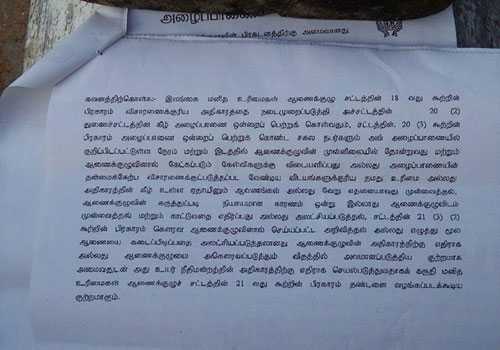 அழைப்பாணை
பிரகடனத்திற்கு அமைவானது
கவனத்திற்கொள்க:- இலங்கை மனித உரிமைகள் ஆணைக்குழு சட்டத்தின் 18 வது கூற்றின்
பிரகாரம் விசாரணைக்குரிய அதிகாரத்தை நடைமுறைப்படுத்தி அச்சட்டத்தின் 20 (2)
துணைச்சட்டத்தின் கீழ் அழைப்பாணை ஒன்றைப் பெற்றுக் கொள்வதும், சட்டத்தின், 20 (3) கூற்றின்
பிரகாரம் அழைப்பாணை ஒன்றைப் பெற்றுக் கொண்ட சகல நபர்களும் அவ் அழைப்பாணையில்
குறிப்பிடப்பட்டுள்ள நேரம் மற்றும் இடத்தில் ஆணைக்குழுவின் முன்னிலையில் தோன்றுவது மற்றும்
ஆணைக்குழுவினால் கேட்கப்படும் கேள்விகளுக்கு விடையளிப்பது அல்லது அழைப்பாணையின்
தன்மைக்கேற்ப விசாரணைக்குட்படுத்தப்பட வேண்டிய விடயங்களுக்குரிய நமது உரிமை அல்லது
அதிகாரத்தின் கீழ் உள்ள ஏதாயினும் ஆவணங்கள் அல்லது வேறு எதனையாவது முன்வைத்தல்,
ஆணைக்குழுவின் கருத்தப்படி நியாயமான காரணம் ஒன்று இல்லாது ஆணைக்குழுவிடம்
முன்வைத்தல் மற்றும் காட்டுவதை எதிர்ப்பது அல்லது அலட்சியப்படுத்தல், சட்டத்தின் 21 (3) (ஏ)
கூற்றின் பிரகாரம் கௌரவ ஆணைக்குழுவினால் செய்யப்பட்ட அறிவித்தல் அல்லது எழுத்து மூல
ஆணையை கடைப்பிடிப்பதை அலட்சியப்படுத்தலானது ஆணைக்குழுவின் அதிகாரத்திற்கு எதிராக
அல்லது ஆணைக்குழுவை அகௌரவப்படுத்தும் விதத்தில் அவமானப்படுத்திய குற்றமாக
அமைவதுடன் அது உயர் நீதிமன்றத்தின் அதிகாரத்திற்கு எதிராக செயல்படுத்துவதாகக் கருதி மனித
உரிமைகள் ஆணைக்குழுச் சட்டத்தின் 21 வது கூற்றின் பிரகாரம் தண்டனை வழங்கப்படக்கூடிய
குற்றமாகும்.